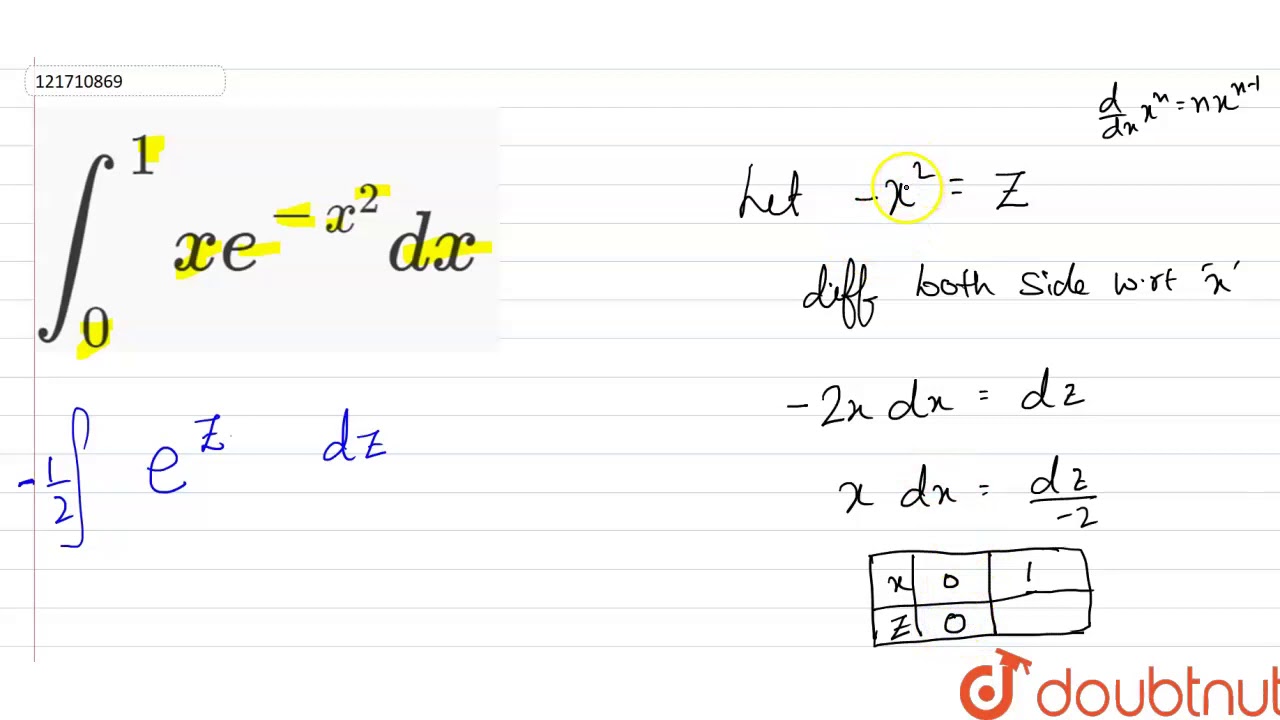 121710869
d/dx x^n = nx^(n-1)
∫_0^1 xe^(-x^2) dx
Let -x^2 = Z
diff both side w.r.t 'x'
-2x dx = dz
-1/2 ∫ e^z dz
x dx = dz/-2
x 0 1
z 0
doubtnut